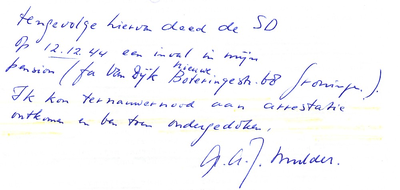 tengevolge hiervan deed de SD
op 12.12.44 een inval in mijn
pension (fa Van Dijk Nieuwe Boteringestr. 68 Groningen.).
Ik kon ternauwernood aan arrestatie
ontkomen en ben toen ondergedoken.
G. A. J. Mulder.